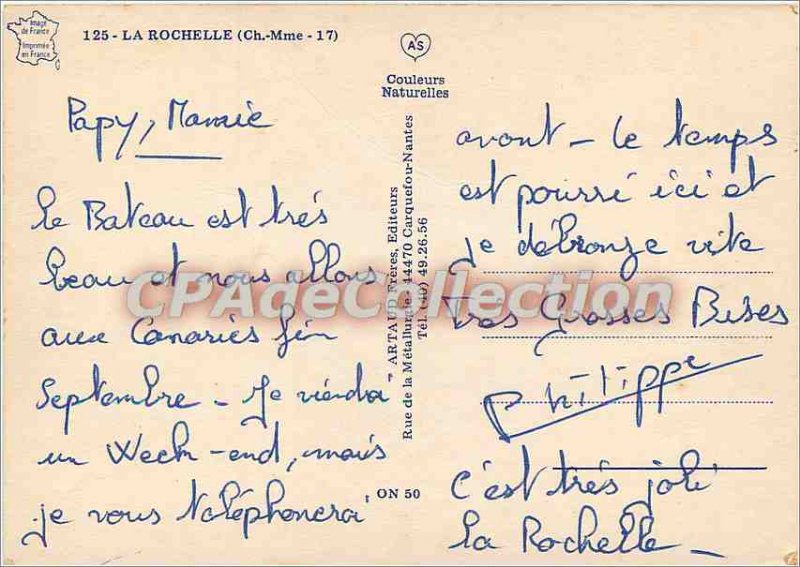 Image
de France
Imprimée
en France
125 - LA ROCHELLE (Ch.-Mme - 17)
AS
Couleurs
Naturelles
Papy, Mamie
le Bateau est très
beau et nous allons
aux Canaries fin
Septembre - Je viendrai
un Week-end, mais
je vous téléphonerai
" ARTAUD Frères, Editeurs
Rue de la Métallurgie - 44470 Carquefou-Nantes
Tél. (40) 49.26.56
ON 50
avant - le temps
est pourri ici et
je débronze vite
Très Grosses Bises
Philippe
c'est très joli
la Rochelle -
CPAdeCollection